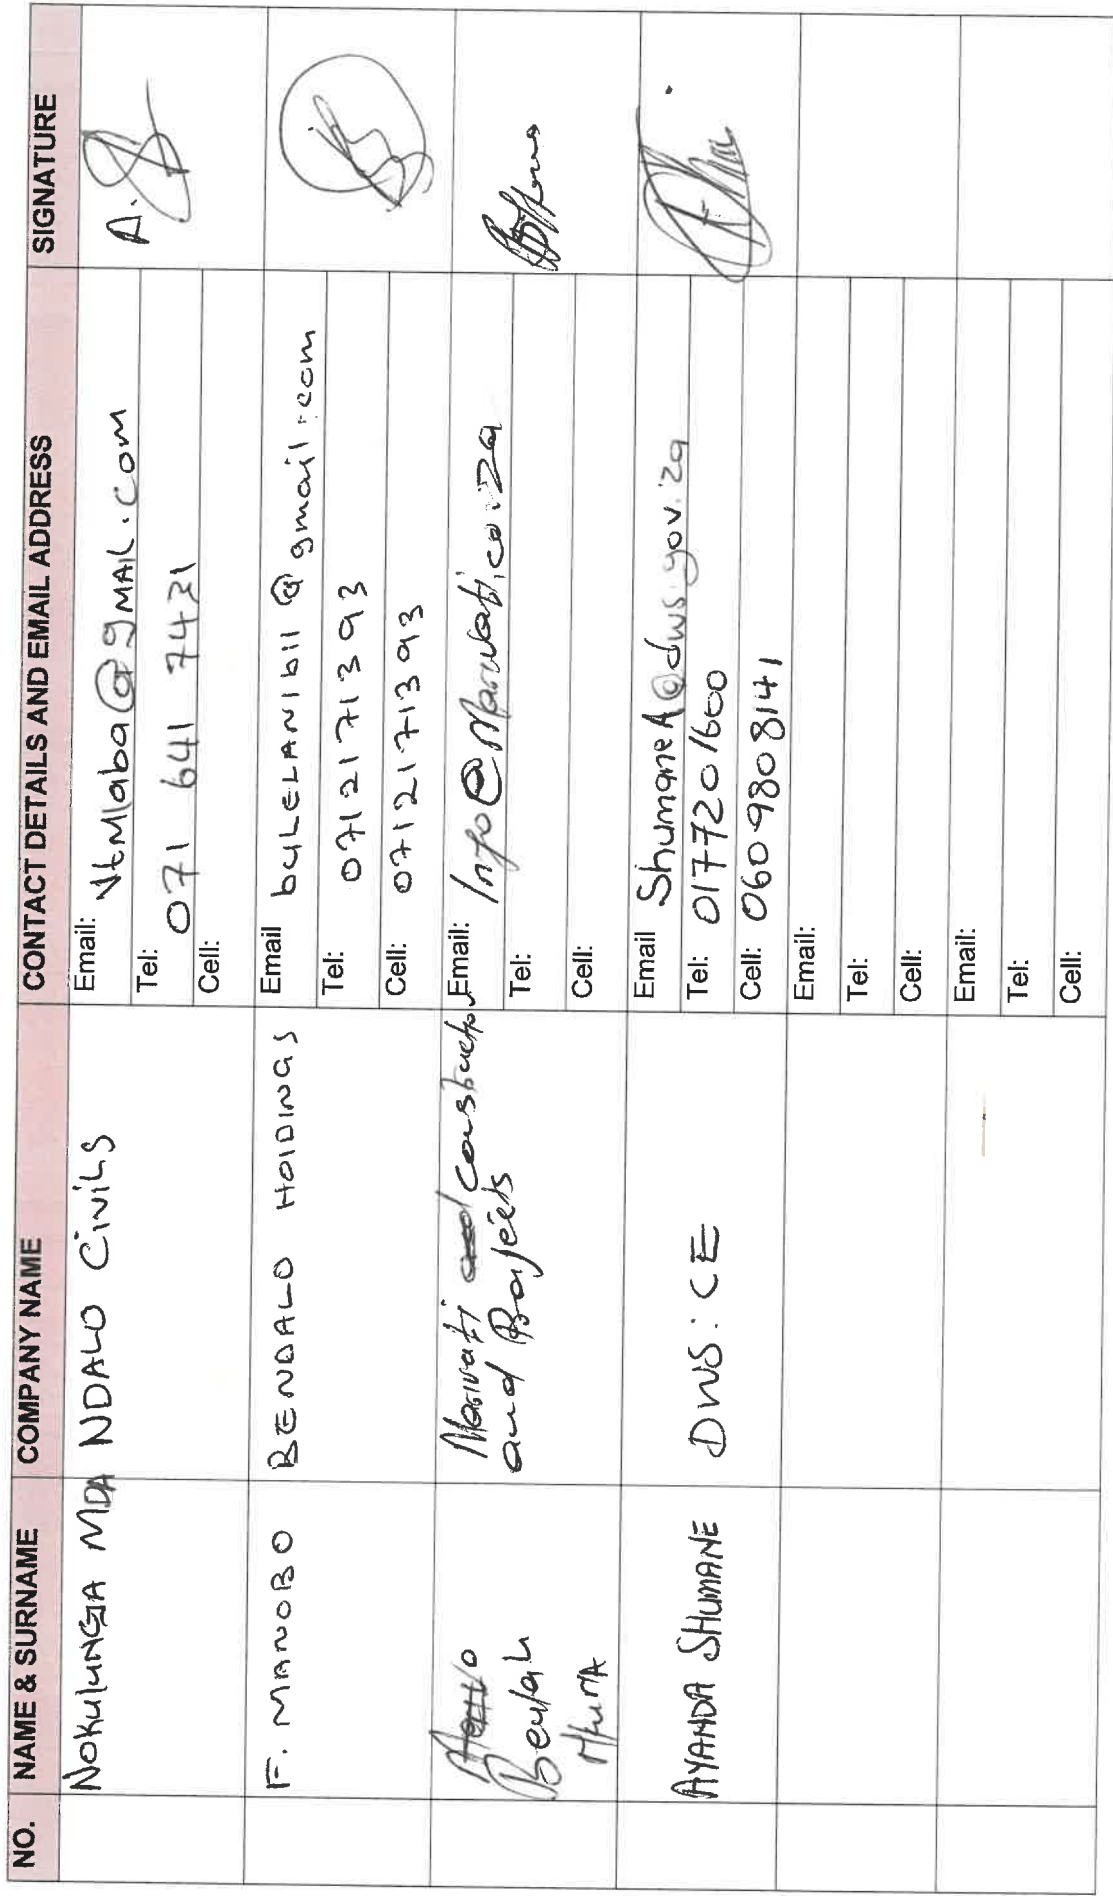 NO. NAME & SURNAME COMPANY NAME CONTACT DETAILS AND EMAIL ADDRESS SIGNATURE
Nokulunga MDA NDALO Civils Email: VtMlaba@gmail.com
Tel: 071 641 7421
Cell:
F. MANOBO BENDALO HOLDINGS Email bulelanibll@gmail.com
Tel: 0712171393
Cell: 0712171393
Beulah Marivati Construction Email: Info@Marivati.co.za
and Projects Tel:
Cell:
AYANDA SHUMANE DWS: CE Email ShumaneA@dws.gov.za
Tel: 0177201600
Cell: 0609808141
Email:
Tel:
Cell:
Email:
Tel:
Cell: